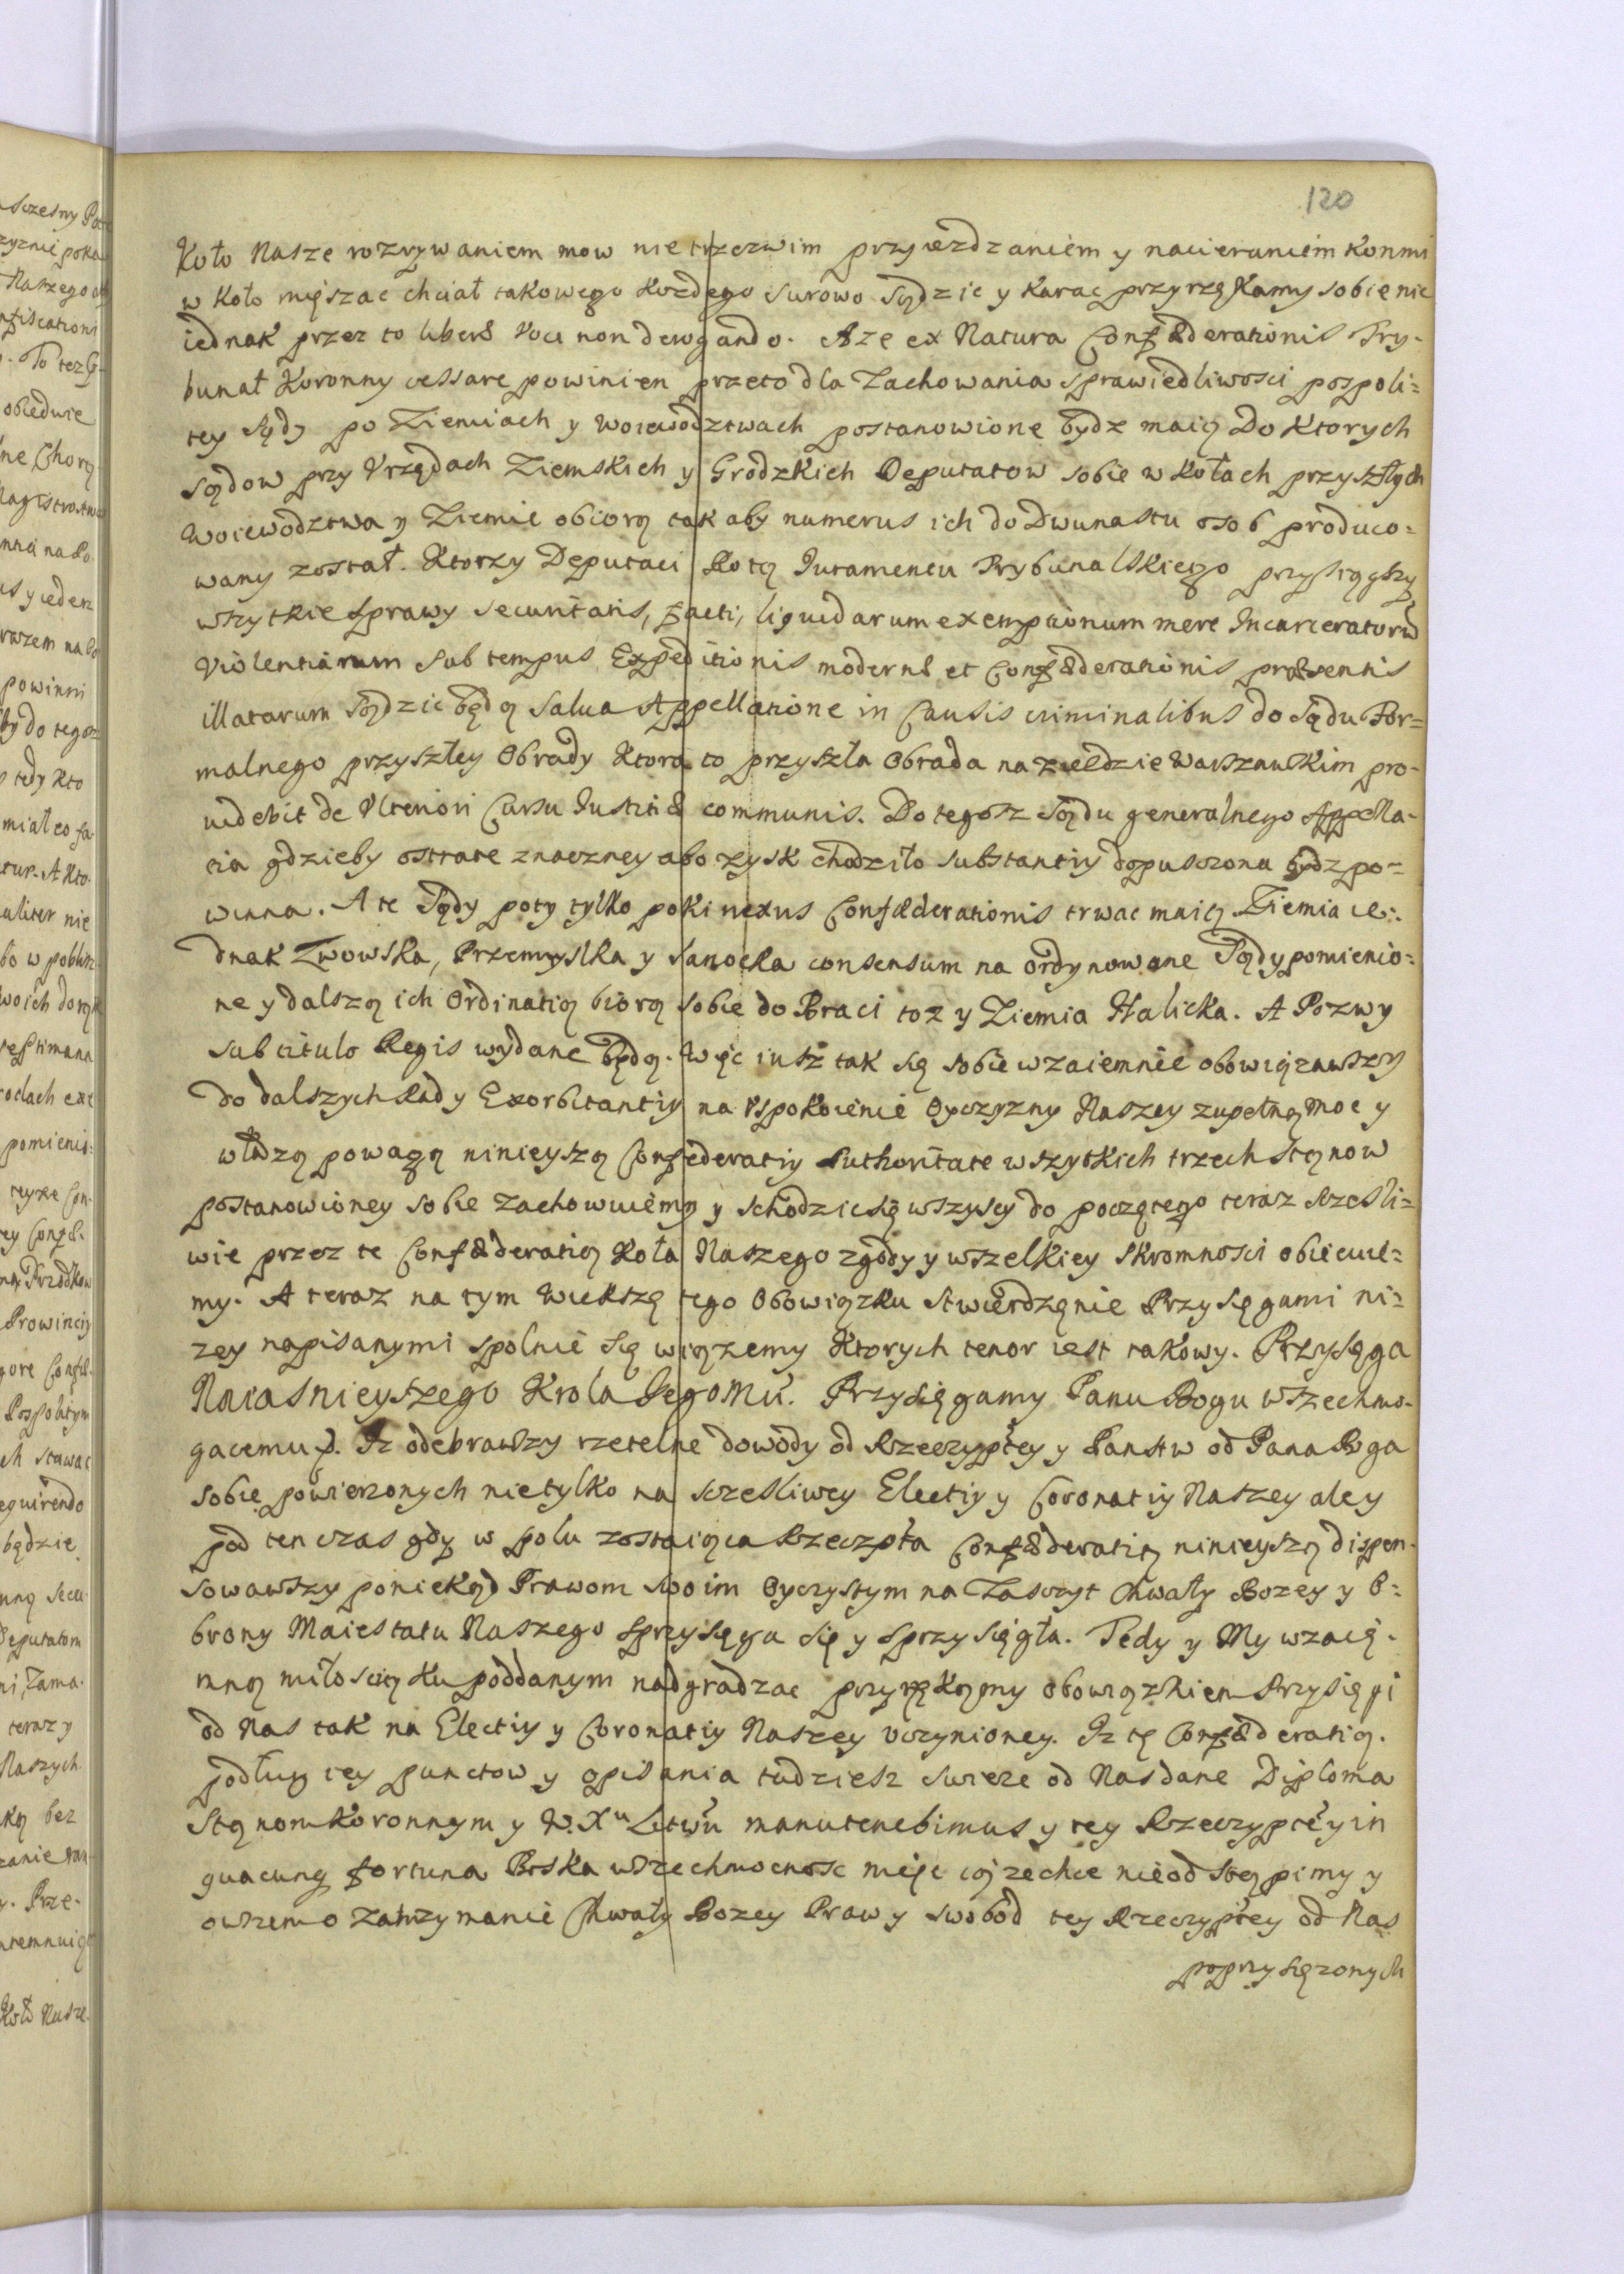 120
Koło Nasze rozrywaniem mow nietrzezwim przyiezdzaniem y nacieraniem Konmi
w Koło mięszac chciał takowego Kozdego surowo sądzic y Karac przyrzękamy sobie nie
iednak przez to liberæ voci non derogando. A ze ex Natura Confæderationis Try-
bunał Koronny cessare powinien przeto dla Zachowania sprawiedliwosci pospoli=
tey sądy po Ziemiach y Woiewodztwach postanowione bydz maią Do Ktorych
sądow przy Vrzędach Ziemskich y Grodzkich Deputatow sobie w Kołach przyszłych
Woiewodztwa y Ziemie obiorą tak aby numerus ich do Dwunastu osob produco=
wany został. Ktorzy Deputaci Rotą Iuramentu Trybunalskiego przysiągszy
wszytkie sprawy securitatis, facti, liquidarum exemptionum mere Incarceratorũ
Violentiarum sub tempus Expeditionis modernæ et Confæderationis præsentis
illatarum sądzic będą salua Appellatione in Causis criminalibus do sądu For=
malnego przyszłey Obrady Ktora to przyszła Obrada na zieldzie Warszawskim pro-
uidebit de Vlteriori Cursu Iustitiæ communis. Do tegosz sądu generalnego Appella-
cia gdzieby ostrate znaczney abo zysk chodziło substantiy dopusczona bydz po=
winna. A te sądy poty tylko poki nexus Confæderationis trwac maią. Ziemia ie=
dnak Lwowska, Przemyslka y Sanocka consensum na ordynowane Sądy pomienio=
ne y dalszą ich Ordinatią biorą sobie do Braci toz y Ziemia Halicka. A Pozwy
sub titulo Regis wydane będą. Więc iusz tak się sobie wzaiemnie obowiązawszy
do dalszych Rad y Exorbitantiy na Vspokoienie Oyczyzny Naszey zupełną moc y
władzą powagą ninieyszą Confederatiy Authoritate wszytkich trzech stąnow
postanowioney sobie zachowuiemy y schodzic się wszyscy do poczętego teraz szesli=
wie przez te Confæderatią Koła Naszego zgody y wszelkiey skromnosci obiecuie=
my. A teraz na tym wieksze tego Obowiązku stwierdzęnie Przysięgami ni=
zey napisanymi spolnie się wiązemy Ktorych tenor iest takowy. Przysięga
Naiasnieyszego Krola Iegomu. Przysięgamy Panu Bogu wszechmo-
gacemu. Iz odebrawszy rzetelne dowody od Rzeczyptey y Panstw od Pana Boga
sobie powierzonych nietylko na sczesliwey Electiy y Coronatiy Naszey ale y
pod ten czas gdy w polu zostaiąca Rzeczpta Confæderatią ninieyszą dispen-
sowawszy poniekąd Prawom swoim Oyczystym na Zasczyt Chwały Bozey y O=
brony Maiestatu Naszego sprzysięga się y sprzysięgła. Tedy y My wzaię-
mną miłoscią Ku poddanym nadgradzac przyrzękąmy obowiązkiem Przysięgi
od Nas tak na Electiy y Coronatiy Naszey vczynioney. Iz tę Confæderatią.
podług iey punctow y opisania tudziesz swieze od Nas dane Diploma
Stąnom Koronnym y W. Xu Littwu manutenebimus y tey Rzeczyptey in
quacunq fortuna Boska wszechmocnosc miec ią zechce nieodstąpimy y
owszem o zatrzymanie Chwały Bozey Praw y swobod tey Rzeczyptey od Nas
poprzysięzonych